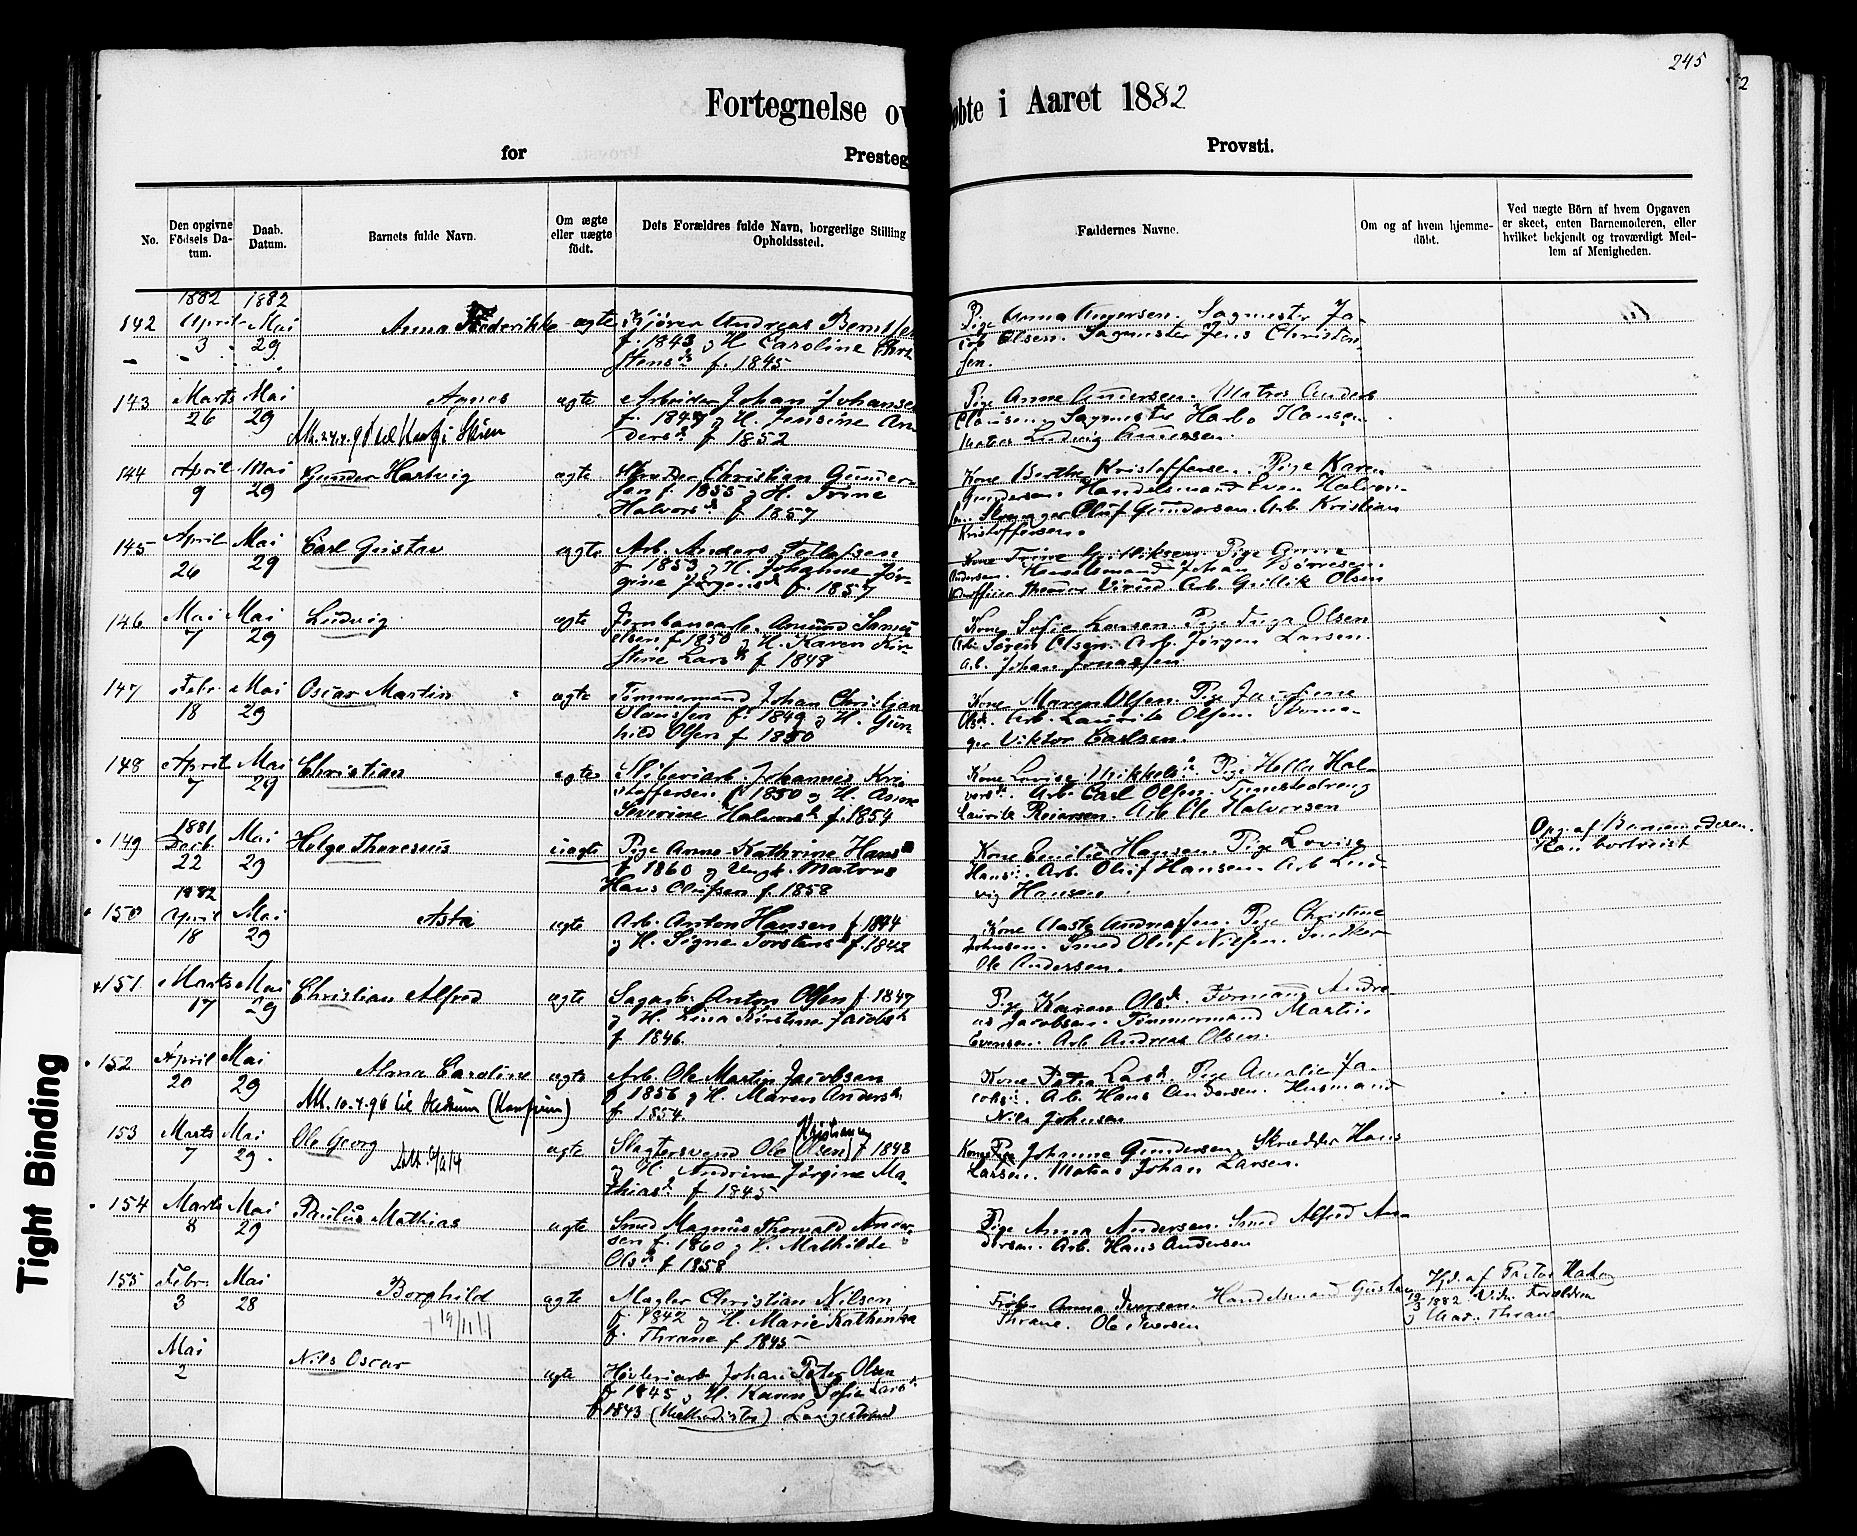 245
Fortegnelse ov
øbte i Aaret 1882
for
Presteg
Provsti.
No.
Den opgivne Födsels Da-
tum.
Daab.
Datum.
Barnets fulde Navn.
Om ægte
eller uægte
födt.
Dets Forældres fulde Navn, borgerlige Stilling
Opholdssted.
Faddernes Navne.
Om og af hvem hjemme-
döbt.
Ved uægte Börn af hvem Opgaven
er skeet, enten Barnemoderen, eller
hvilket bekjendt og troværdigt Med-
lem af Menigheden.
1882 1882
142 April 3 Mai 29 Anna Frederikke ægte Andreas
f. 1843 og H. Caroline Chri-
stensd. f. 1845
Pige Anna Andersen. Sagmester Ja-
cob Olsen. Sagmester Jens Christen-
sen.
143 Marts 26 Mai 29 Agnes ægte Arbeider Johan Johansen
f. 1849 og H. Jensine An-
dersd. f. 1852
Pige Anne Andersen. Matros Anders
Sagmester Hansen
Matros Ludvig Andersen.
144 April 9 Mai 29 Gunder Hartvig ægte Christian Gunder-
sen f. 1855 og H. Trine
Halvorsd. f. 1857
Kone Berthe Kristoffersen. Pige Karen
Gundersen. Handelsmand Even Halvor-
sen. Oluf Gundersen. Arb. Kristian
Kristoffersen.
145 April 26 Mai 29 Carl Gustav ægte Arb. Anders Tollefsen
f. 1853 og H. Johanne Jør-
gine Jørgensd. f. 1857
Kone Trine Gulliksen. Pige Anne
Andersen. Handelsmand Johan
Arb. Gullik Olsen
146 Mai 7 Mai 29 Ludvig ægte Jernbanearb. Amund Samu-
elsen f. 1850 og H. Karen Kir-
stine Larsd. f. 1848
Kone Sofie Larsen. Pige Inga Olsen
Arb. Søren Olsen. Arb. Jørgen Larsen.
Arb. Johan Jonassen
147 Febr. 18 Mai 29 Oscar Martin ægte Tømmermand Johan Christian
Olaussen f. 1849 og H. Gun-
hild Olsen f. 1850
Kone Maren Olsen. Pige
Olsd. Arb. Laurits Olsen. Skoma-
ger Viktor Carlsen.
148 April 7 Mai 29 Christian ægte Sliberiarb. Johannes Kri-
stoffersen f. 1850 og H. Anne
Severine Halvorsd. f. 1854
Kone Lovise Mikkelsd. Pige Helle Hal-
vorsd. Arb. Carl Olsen. Tjenestedreng
Laurits Reiersen. Arb. Ole Halvorsen
1881
149 Decb. 22 Mai 29 Helge Theresius uægte Pige Anne Kathrine Hansd.
f. 1860 og Ungk. Matros
Hans Olufsen f. 1858
Kone Emilie Hansen. Pige Lovise
Hansd. Arb. Oluf Hansen. Arb. Lud-
vig Hansen.
Opg. af Barnemoderen.
Han bortreist
1882
150 April 18 Mai 29 Asta ægte Arb. Anton Hansen f. 1844
og H. Signe Torstensd. f. 1842
Kone Aaste Andreassen. Pige Christine
Johnsen. Smed Oluf Nielsen. Snedker
Ole Andersen.
151 Marts 17 Mai 29 Christian Alfred ægte Sagarb. Anton Olsen f. 1847
og H. Lina Kirstine Jacobsd.
f. 1846.
Pige Karen Olsd. Formand Andre-
as Jacobsen. Tømmermand Martin
Evensen. Arb. Andreas Olsen.
152 April 20 Mai 29 Alma Caroline ægte Arb. Ole Martin Jacobsen
f. 1856 og H. Maren Andersd.
f. 1854.
Att. 10.4.96 til
Kone Petra Larsd. Pige Amalie Ja-
cobsd. Arb. Hans Andersen. Husmand
Nils Johnsen
153 Marts 7 Mai 29. Ole Georg ægte Slagtersvend Ole (Olsen) Kristiansen f. 1848
og H. Andrine Jørgine Ma-
thiasd. f. 1845
Kone Johanne Gundersen. Skrædder Hans
Larsen. Matros Johan Larsen.
154 Marts 8 Mai 29 Paulus Mathias ægte Smed Magnus Thorvald Ander-
sen f. 1860 og H. Mathilde
Olsd. f. 1858
Pige Anna Andersen. Smed Alfred An-
dersen. Arb. Hans Andersen
155 Febr. 3 Mai 28 Borghild ægte Mægler Christian Nilsen
f. 1842 og H. Marie Kathinka
f. Thrane f. 1845
† 19/11 11
Frøken Anna Iversen. Handelsmand Gustav
Thrane. Ole Iversen
Hjd. af Pastor
1882
Thrane
Mai 2 Nils Oscar ægte Høvleriarb. Johan Peter Olsen
f. 1845 og H. Karen Sofie Larsd.
f. 1843 (Methodister) Langestrand
Tight Binding